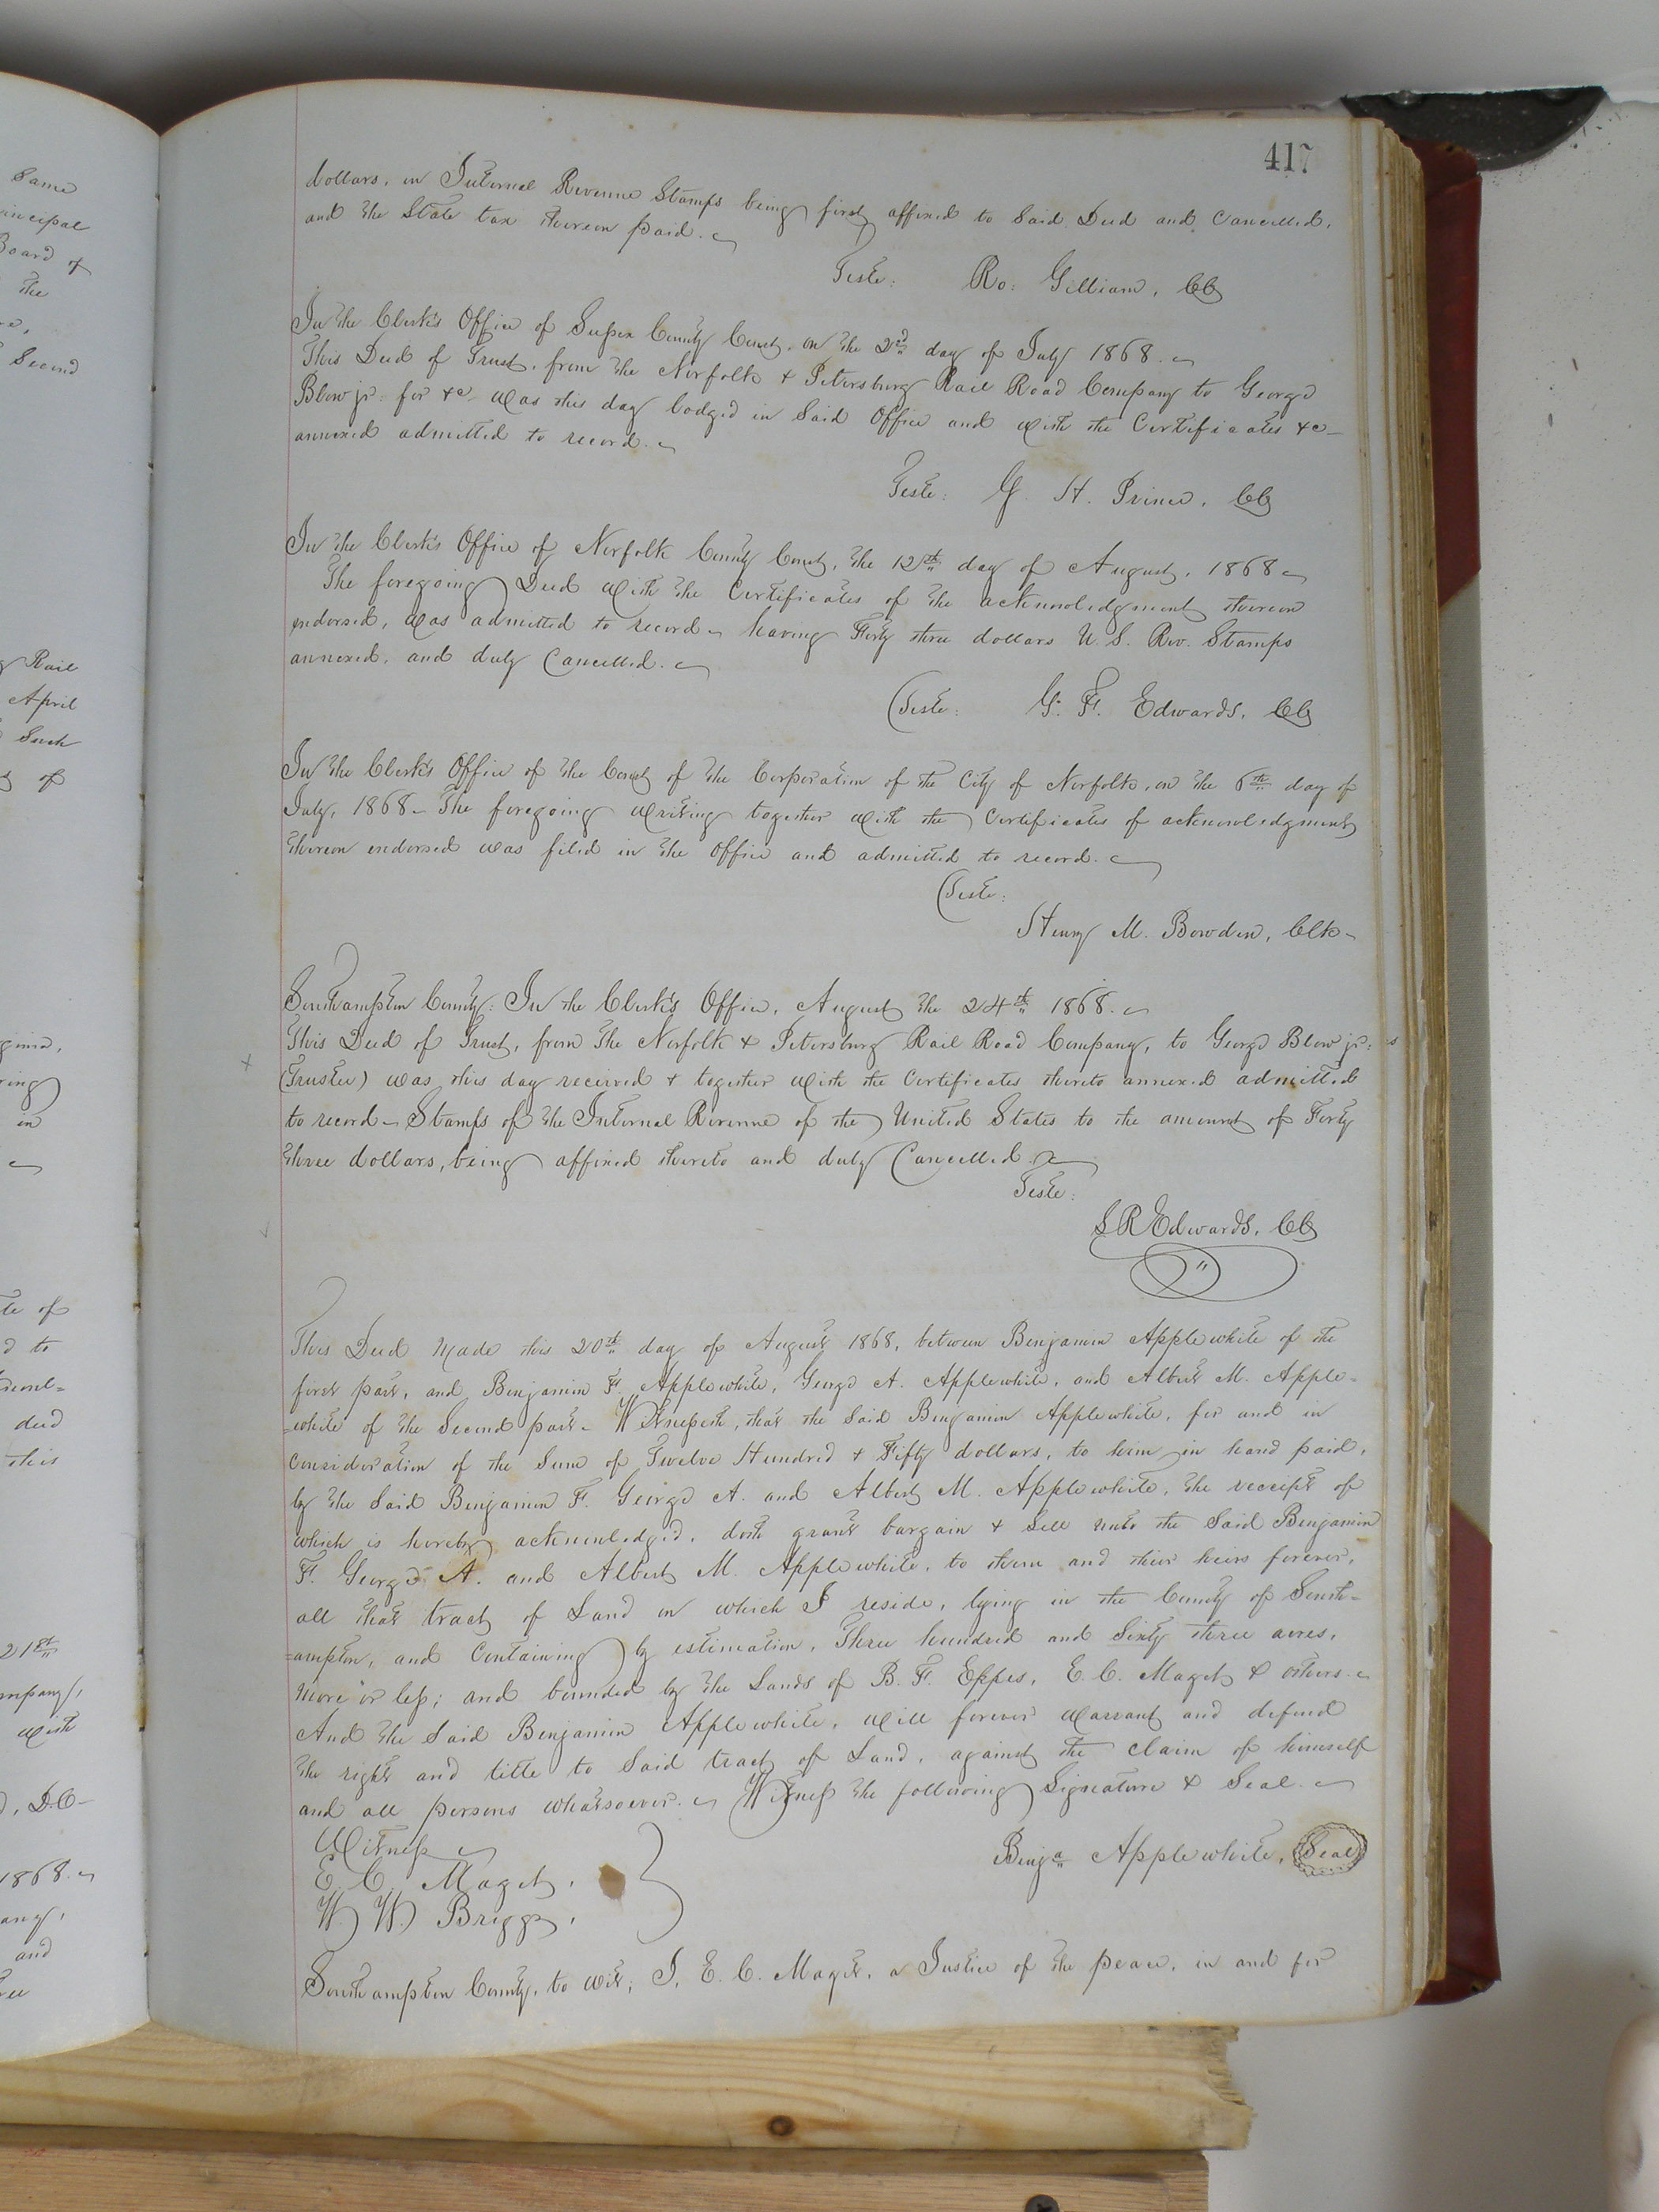 417
dollars, in Internal Revenue Stamps being first affixed to Said Deed and Cancelled,
and the State tax thereon paid.
Teste: Ro: Gilliam, CC
In the Clerk's Office of Sussex County Court, on the 2nd day of July 1868.
This Deed of Trust, from the Norfolk & Petersburg Rail Road Company to George
Blow jr: for &c. Was this day lodged in Said Office and With the Certificates &c
annexed admitted to record.
Teste: G. H. Prince, CC
In the Clerk's Office of Norfolk County Court, the 12th day of August, 1868
The foregoing Deed With the Certificates of the acknowledgment thereon
endorsed, Was admitted to record having Forty three dollars U. S. Rev. Stamps
annexed, and duly Cancelled.
Teste: G. F. Edwards, CC
In the Clerk's Office of the Court of the Corporation of the City of Norfolk, on the 6th day of
July, 1868 - The foregoing Writing together With the Certificates of acknowledgment
thereon endorsed was filed in the Office and admitted to record.
Teste:
Henry M. Bowden, Clk
Southampton County: In the Clerk's Office, August the 24th 1868.
This Deed of Trust, from The Norfolk & Petersburg Rail Road Company, to George Blow jr:
(Trustee) was this day received & together With the Certificates thereto annexed admitted
to record Stamps of the Internal Revenue of the United States to the amount of Forty
three dollars, being affixed thereto and duly Cancelled.
Teste:
L R Edwards, CC
This Deed Made this 20th day of August 1868, between Benjamin Applewhite of the
first part, and Benjamin F. Applewhite, George A. Applewhite, and Albert M. Apple=
=white of the Second part - Witnesseth, that the Said Benjamin Applewhite, for and in
Consideration of the Sum of Twelve Hundred & Fifty dollars, to him in hand paid,
by the Said Benjamin F. George A. and Albert M. Applewhite, the receipt of
which is hereby acknowledged, doth grant bargain & Sell unto the Said Benjamin
F. George A. and Albert M. Applewhite, to them and their heirs forever,
all that tract of Land on which I reside, lying in the County of South=
=ampton, and Containing by estimation, Three hundred and Sixty three acres,
More or less; and bounded by the Lands of B. F. Eppes, E. C. Maget & others.
And the Said Benjamin Applewhite, Will forever Warrant and defend
the right and title to Said tract of Land, against the claim of himself
and all persons whatsoever. Witness the following Signature & Seal.
Witness
Benja Applewhite, Seal
E. C. Maget,
W. W. Briggs,
Southampton County, to Wit; I, E. C. Maget, a Justice of the peace, in and for